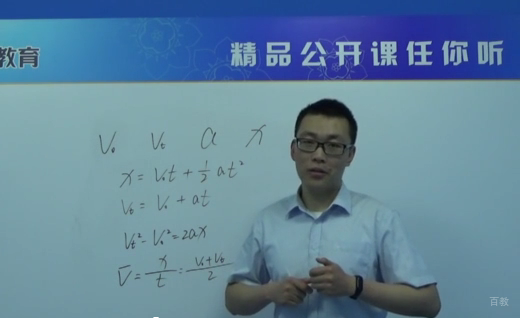 教育
精品公开课任你听
V₀ Vₜ a x
x = V₀t + ½at²
Vₜ = V₀ + at
Vₜ² - V₀² = 2ax
V̅ = x/t = (V₀+Vₜ)/2
百教